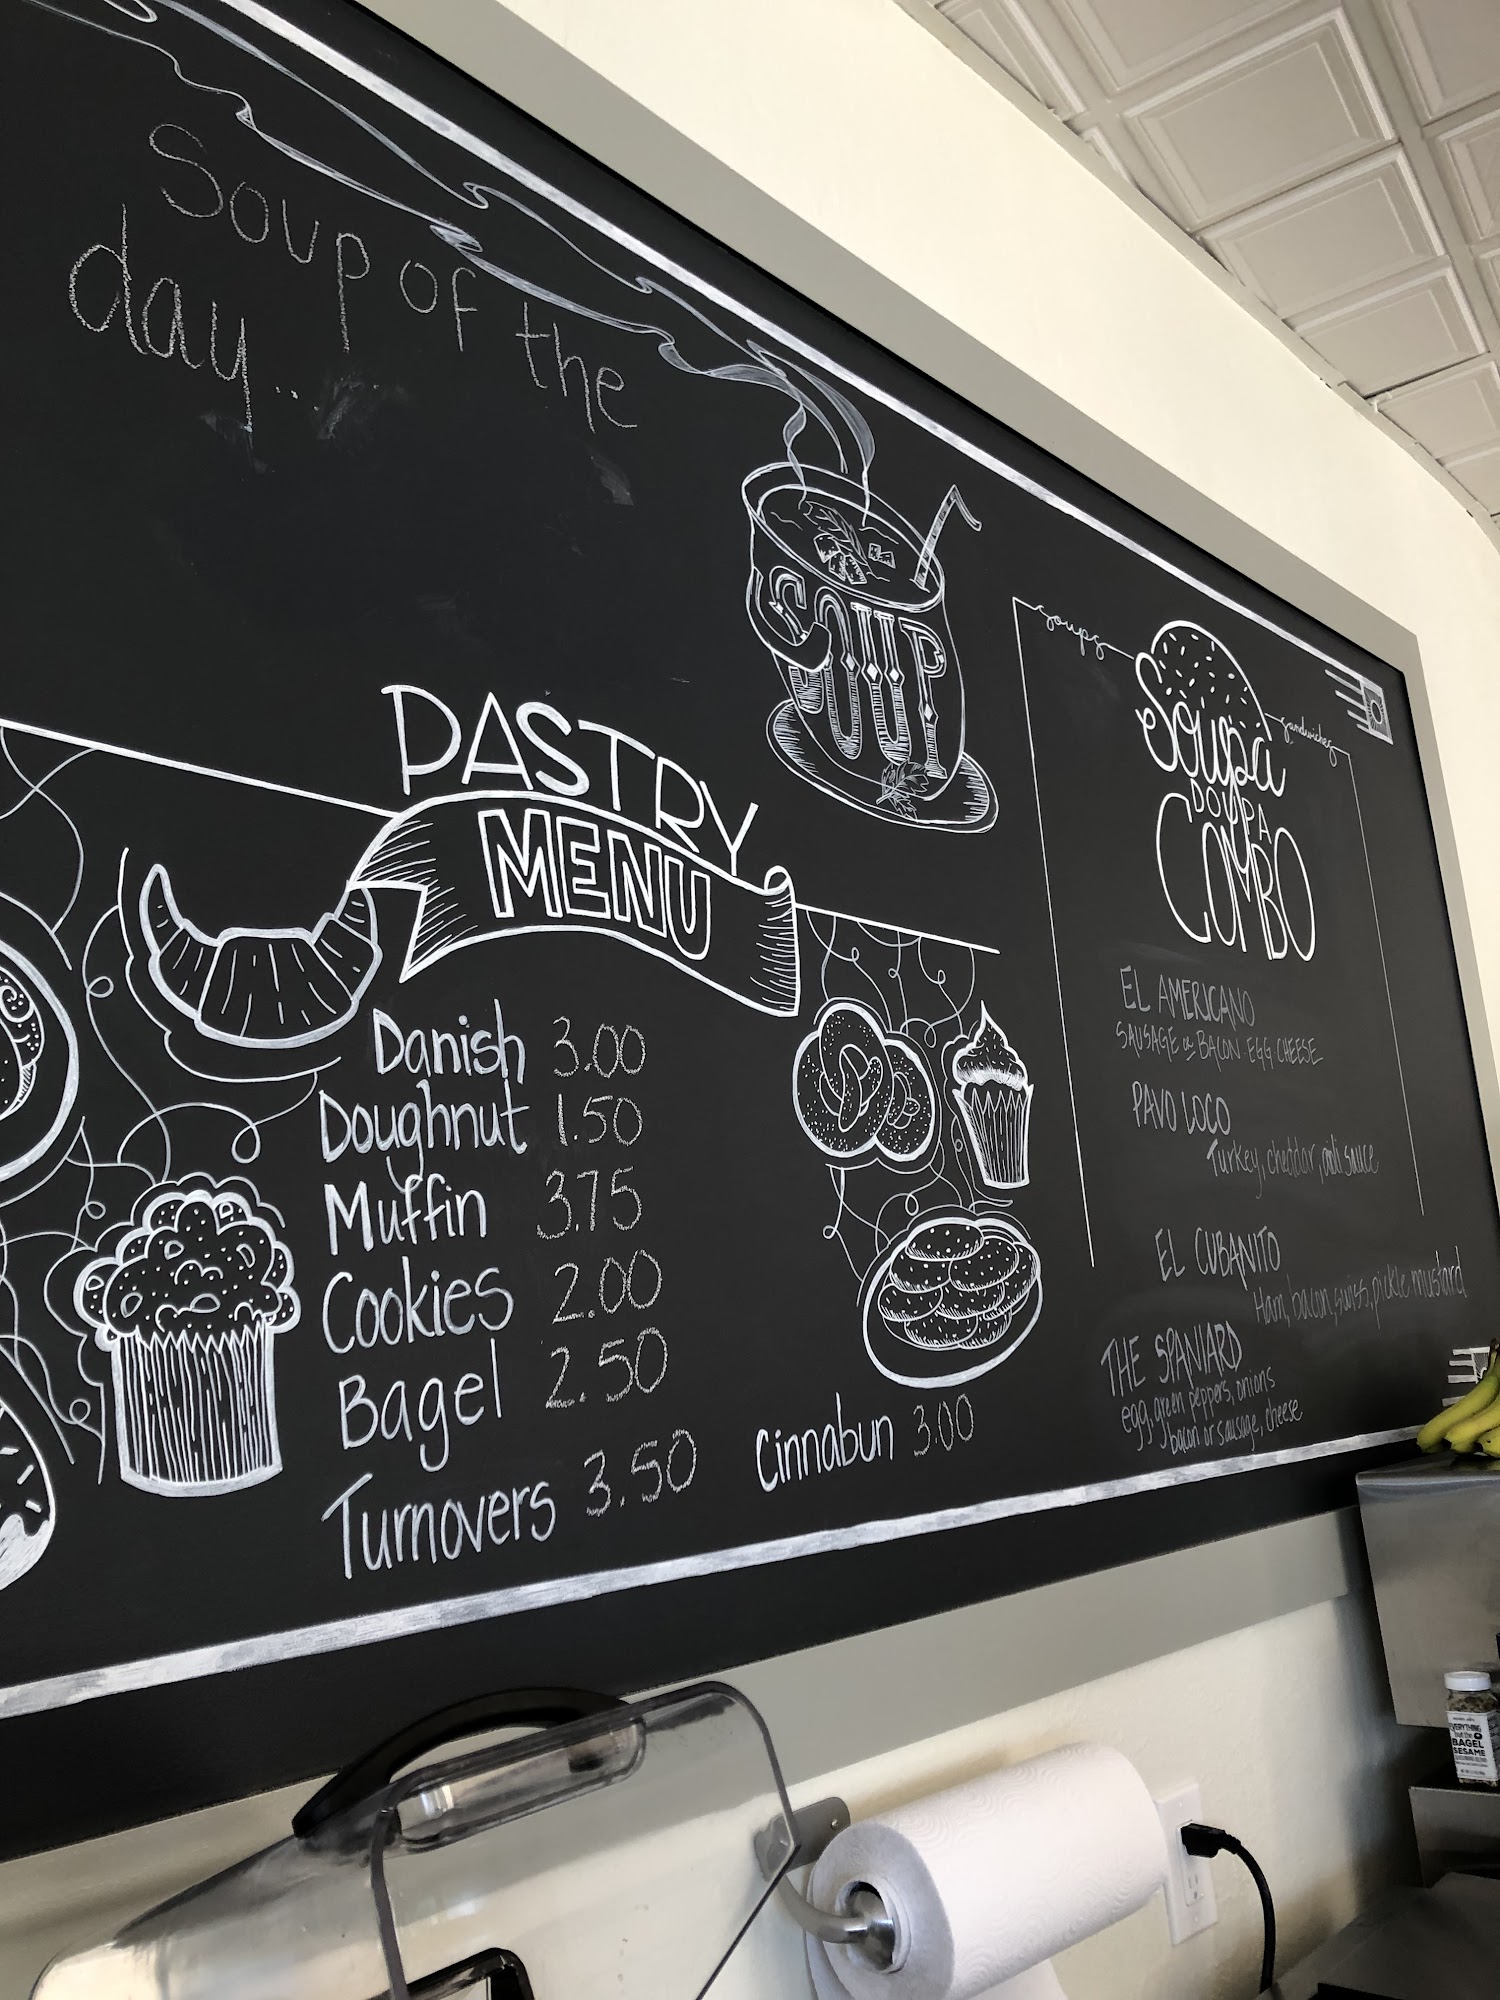 Soup of the
day...
SOUP
PASTRY
MENU
Danish 3.00
Doughnut 1.50
Muffin 3.75
Cookies 2.00
Bagel 2.50
Turnovers 3.50
Cinnabun 3.00
soups
sandwiches
Soupa
DOUPA
COMBO
EL AMERICANO
SAUSAGE or BACON EGG CHEESE
PAVO LOCO
Turkey, cheddar, aioli sauce
EL CUBANITO
Ham, bacon, swiss, pickle mustard
THE SPANIARD
egg, green peppers, onions
bacon or sausage, cheese
EVERYTHING
but the
BAGEL
SESAME